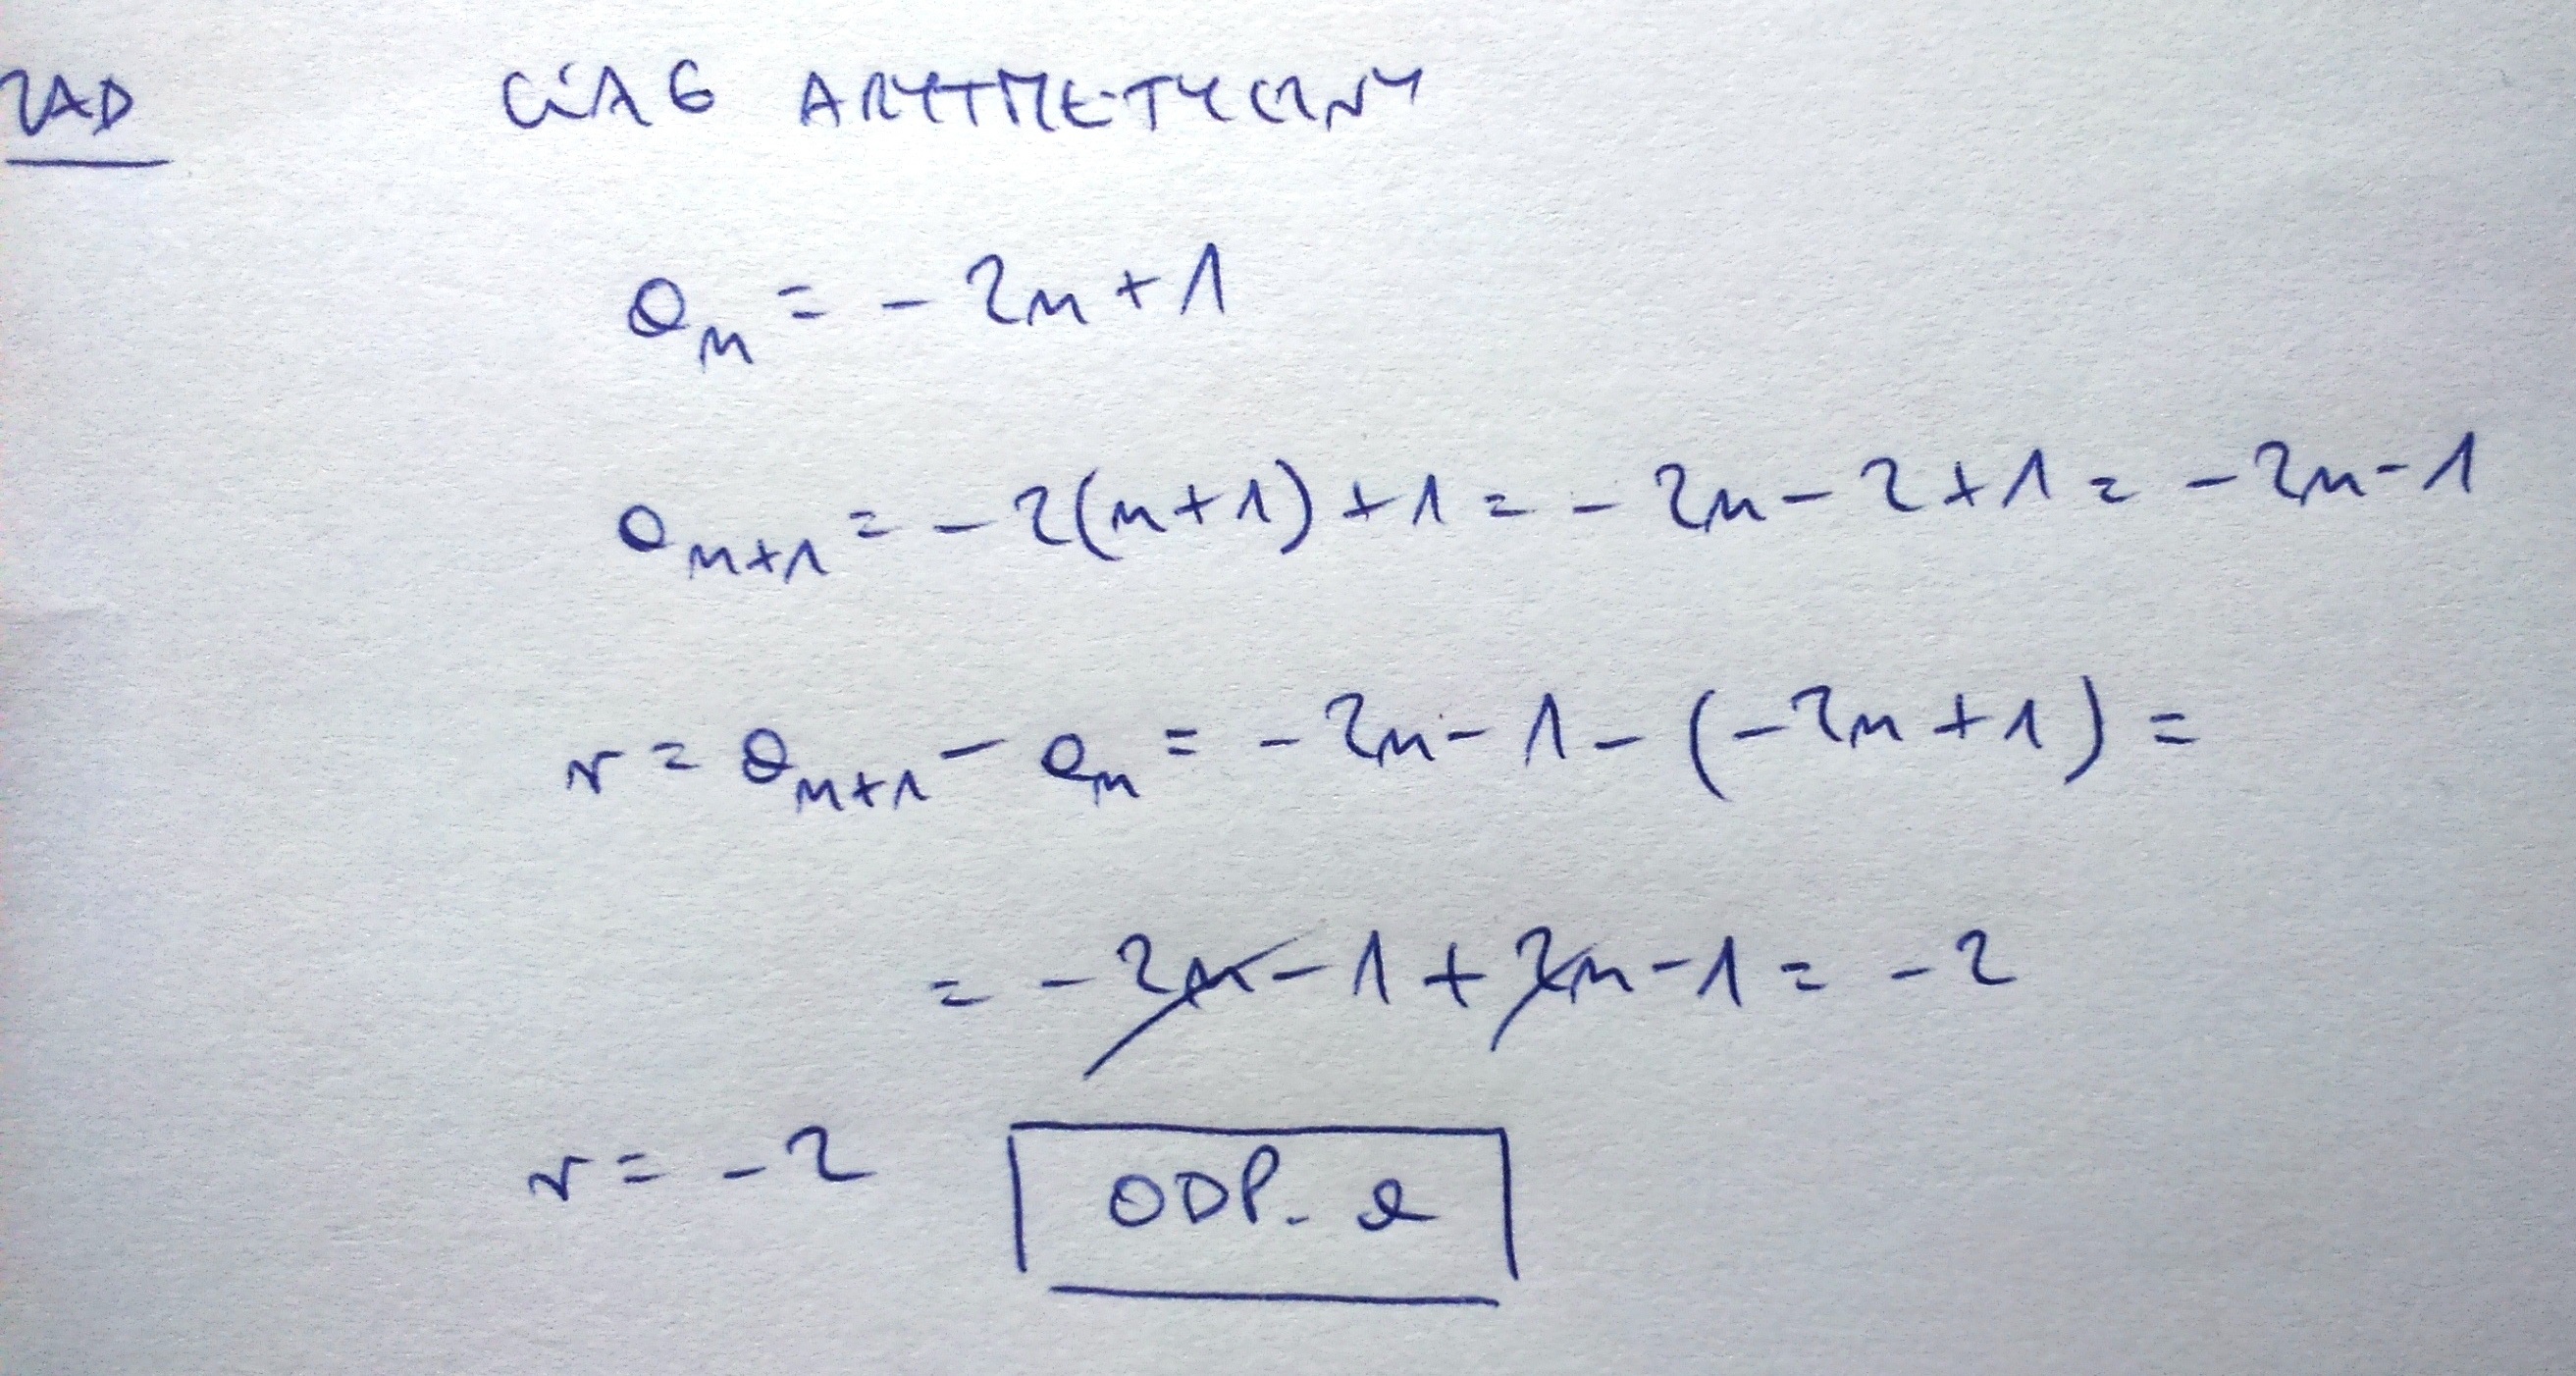 ZAD CIĄG ARYTMETYCZNY
a_n = -2n+1
a_{n+1} = -2(n+1)+1 = -2n-2+1 = -2n-1
r = a_{n+1} - a_n = -2n-1-(-2n+1) =
= -2n-1+2n-1 = -2
r = -2 ODP. a